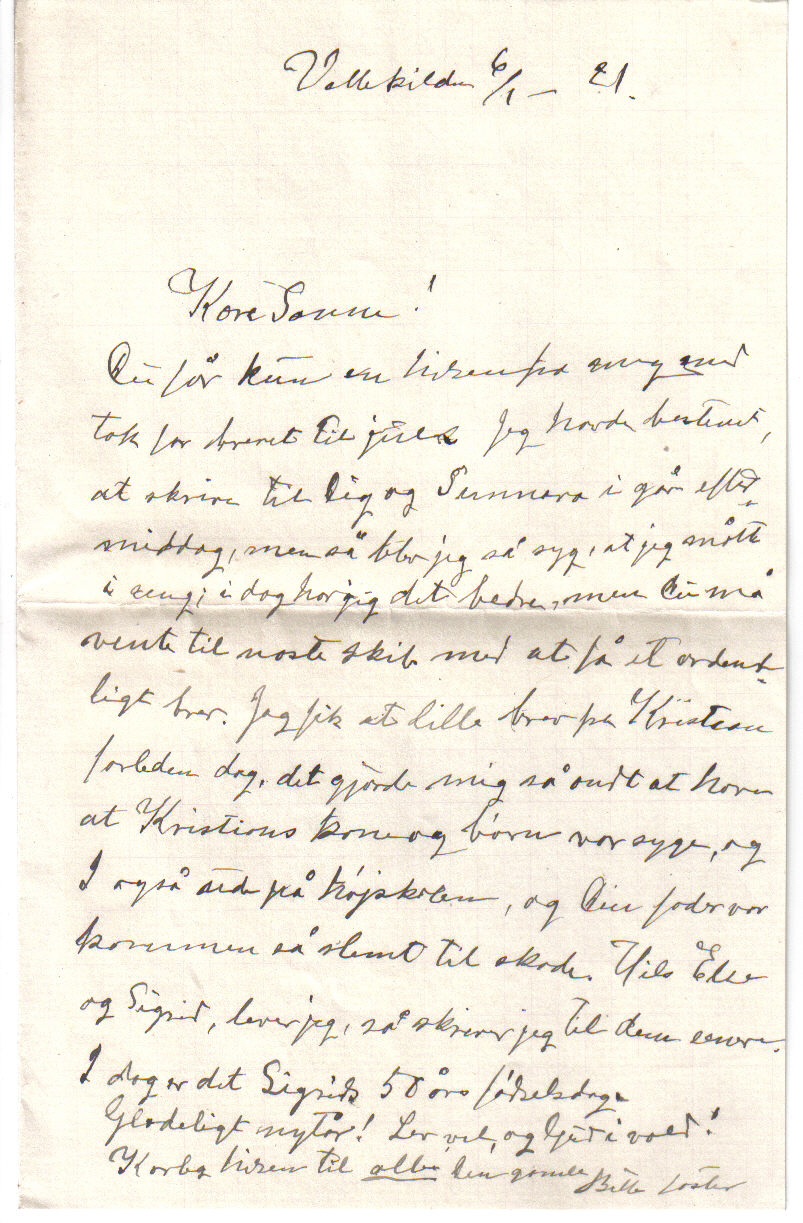 Vallekilde 6/1 – 21.
Kære Sanne!
Du får kun en hilsen fra mig med
tak for brevet til jul. Jeg havde bestemt,
at skrive til Dig og Sunneva i går efter-
middag, men så blev jeg så syg, at jeg måtte
i seng; i dag har jeg det bedre, men Du må
vente til næste skib med at få et ordent-
ligt brev. Jeg fik et lille brev fra Kristian
forleden dag, det gjorde mig så ondt at høre
at Kristians kone og børn var syge, og
I også ude på højskolen, og Din fader var
kommen så slemt til skade. Hils Else
og Sigrid, lever jeg, så skriver jeg til dem senere.
I dag er det Sigrids 50 års fødselsdag.
Glædeligt nytår! Lev vel, og Gud i vold!
Kærlig hilsen til alle, Din gamle Bitte faster